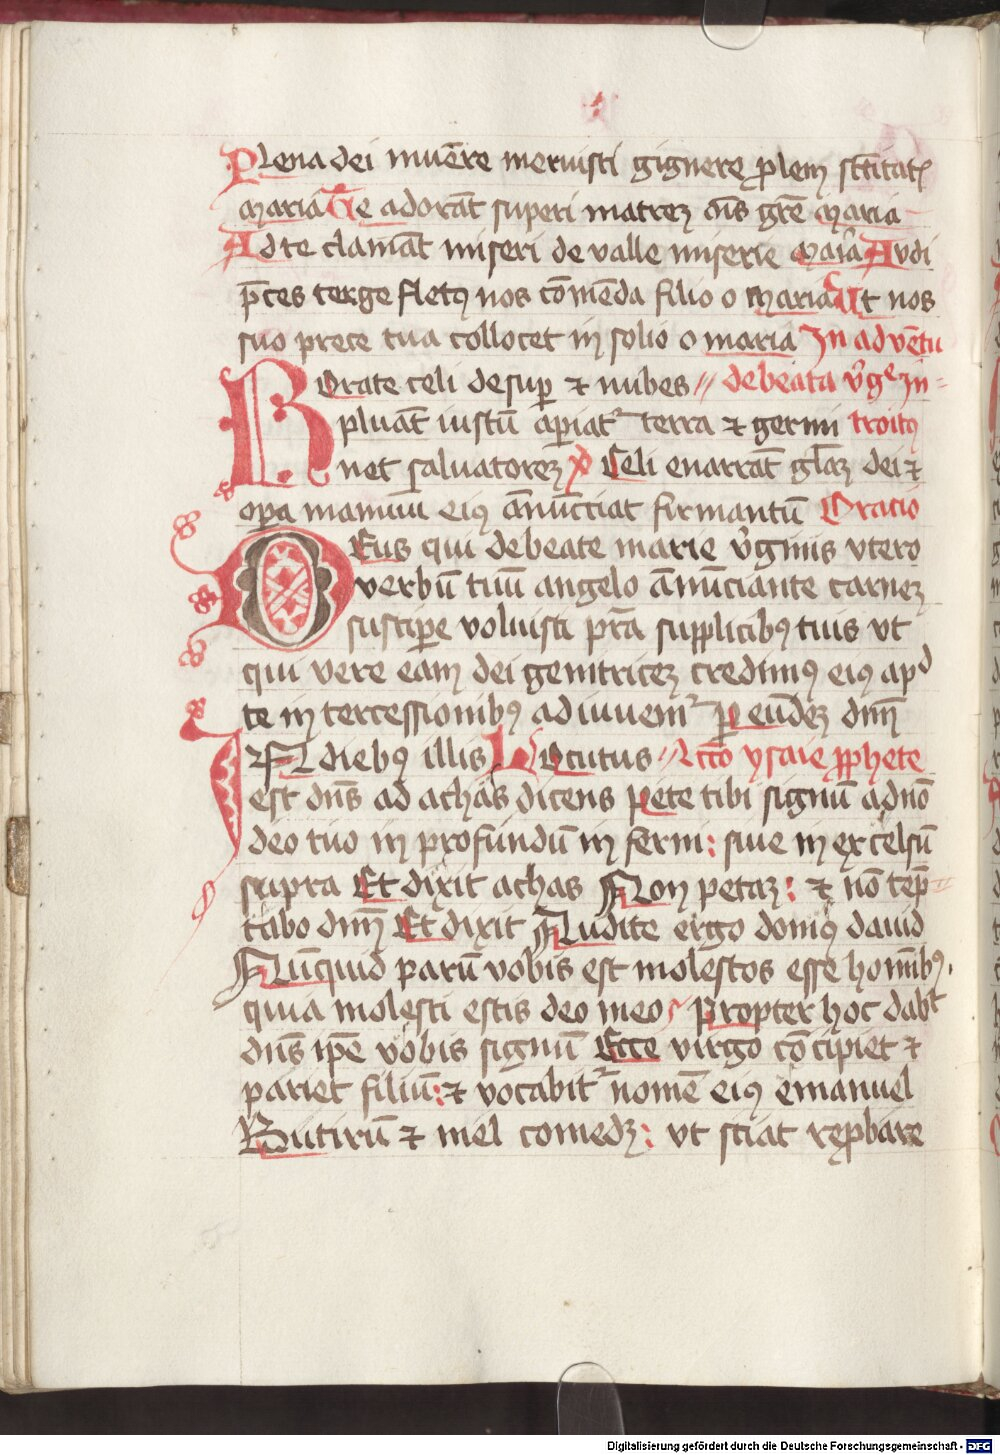 Plena dei mūere meruisti gignere ꝓlem sc̄titatꝭ
maria Te adorāt superi matreꝫ oīs grē maria
Ad te clamāt miseri de valle miserie maīa Audi
p̄ces terge fletꝰ nos cōmēda filio o maria Ut nos
suo prece tua collocet in solio o maria In advētu
Rorate celi desuꝑ ⁊ nubes // de beata v̄gͤ In-
pluāt iustū aꝑiatᷣ terra ⁊ germi troitꝰ
net saluatoreꝫ ℣ Celi enarrāt gl̄aꝫ dei ⁊
oꝑa manuū eiꝰ ānūcciat firmantū Oratio
Deus qui de beate marie v̄ginis vtero
verbū tuū angelo ānūciante carneꝫ
susciꝑe voluisti pr̄a supplicibꝰ tuis vt
qui vere eam dei genitriceꝫ credimꝰ eiꝰ apᵈ
te intercessionibꝰ adiuuemᷣ ꝑ eūdeꝫ dm̄
In diebꝰ illis Locutus // lcc̄o ysaie ꝓphete
est dn̄s ad achas dicens Pete tibi signū a dn̄o
deo tuo in profundū inferni: siue in excelsū
supra Et dixit achas Non petaꝫ: ⁊ nō tēp-
tabo dm̄ Et dixit Audite ergo domꝰ dauid
Nūnquid parū vobis est molestos esse homībꝰ.
quia molesti estis deo meo Propter hoc dabᵗ
dn̄s ip̄e vobis signū Ecce virgo cōcipiet ⁊
pariet filiū: ⁊ vocabitᷣ nomē eiꝰ emanuel
Butirū ⁊ mel comedꝫ: vt sciat reꝓbare
Digitalisierung gefördert durch die Deutsche Forschungsgemeinschaft - DFG